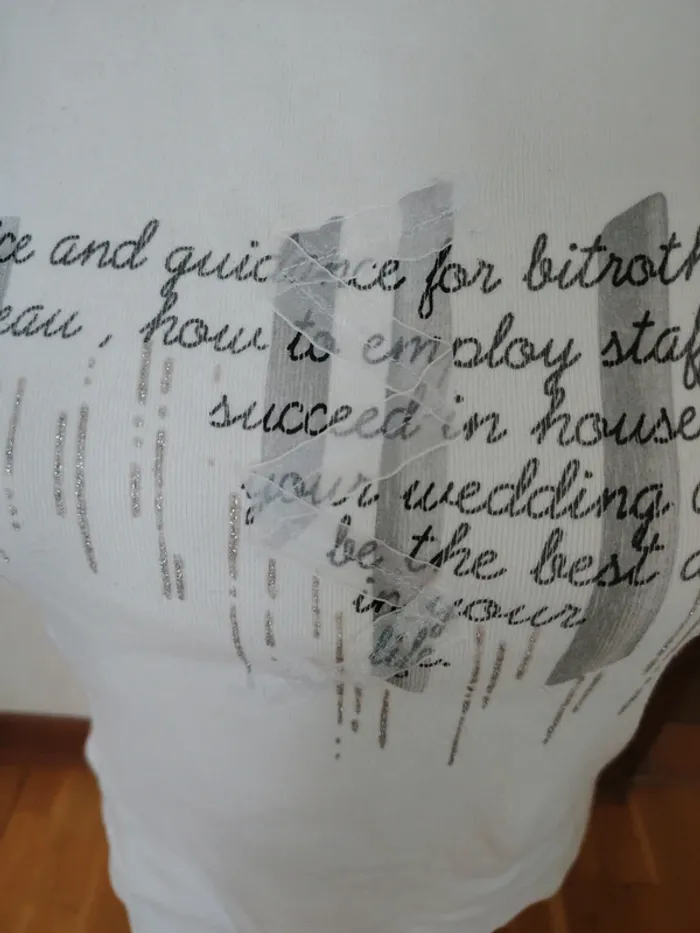 ce and guidance for bitroth
eau, how to employ staf
succeed in house
your wedding
be the best
in your
life.